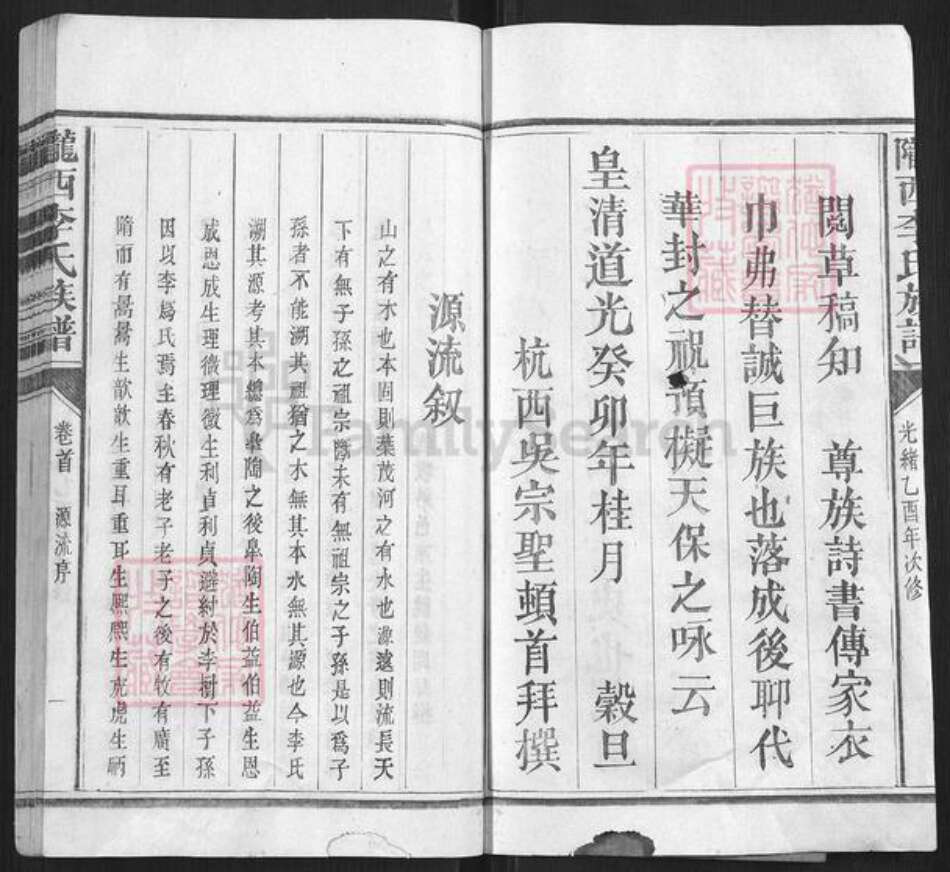 隴西李氏族譜
光緒乙酉年次修
閱草稿知　尊族詩書傳家衣
巾弗替誠巨族也落成後聊代
華封之祝預擬天保之咏云
皇清道光癸卯年桂月　穀旦
杭西吳宗聖頓首拜撰
源流叙
山之有木也本固則葉茂河之有水也源遠則流長天
下有無子孫之祖宗斷未有無祖宗之子孫是以爲子
孫者不能溯其祖猶之木無其本水無其源也今李氏
溯其源考其本繼爲臯陶之後臯陶生伯益伯益生恩
成恩成生理徵理徵生利貞利貞避紂於李樹下子孫
因以李爲氏焉至春秋有老子老子之後有牧有廣至
隋而有暠暠生歆歆生重耳重耳生熙熙生虎虎生昞
隴西李氏族譜
卷首
源流序
一
FamilySearch